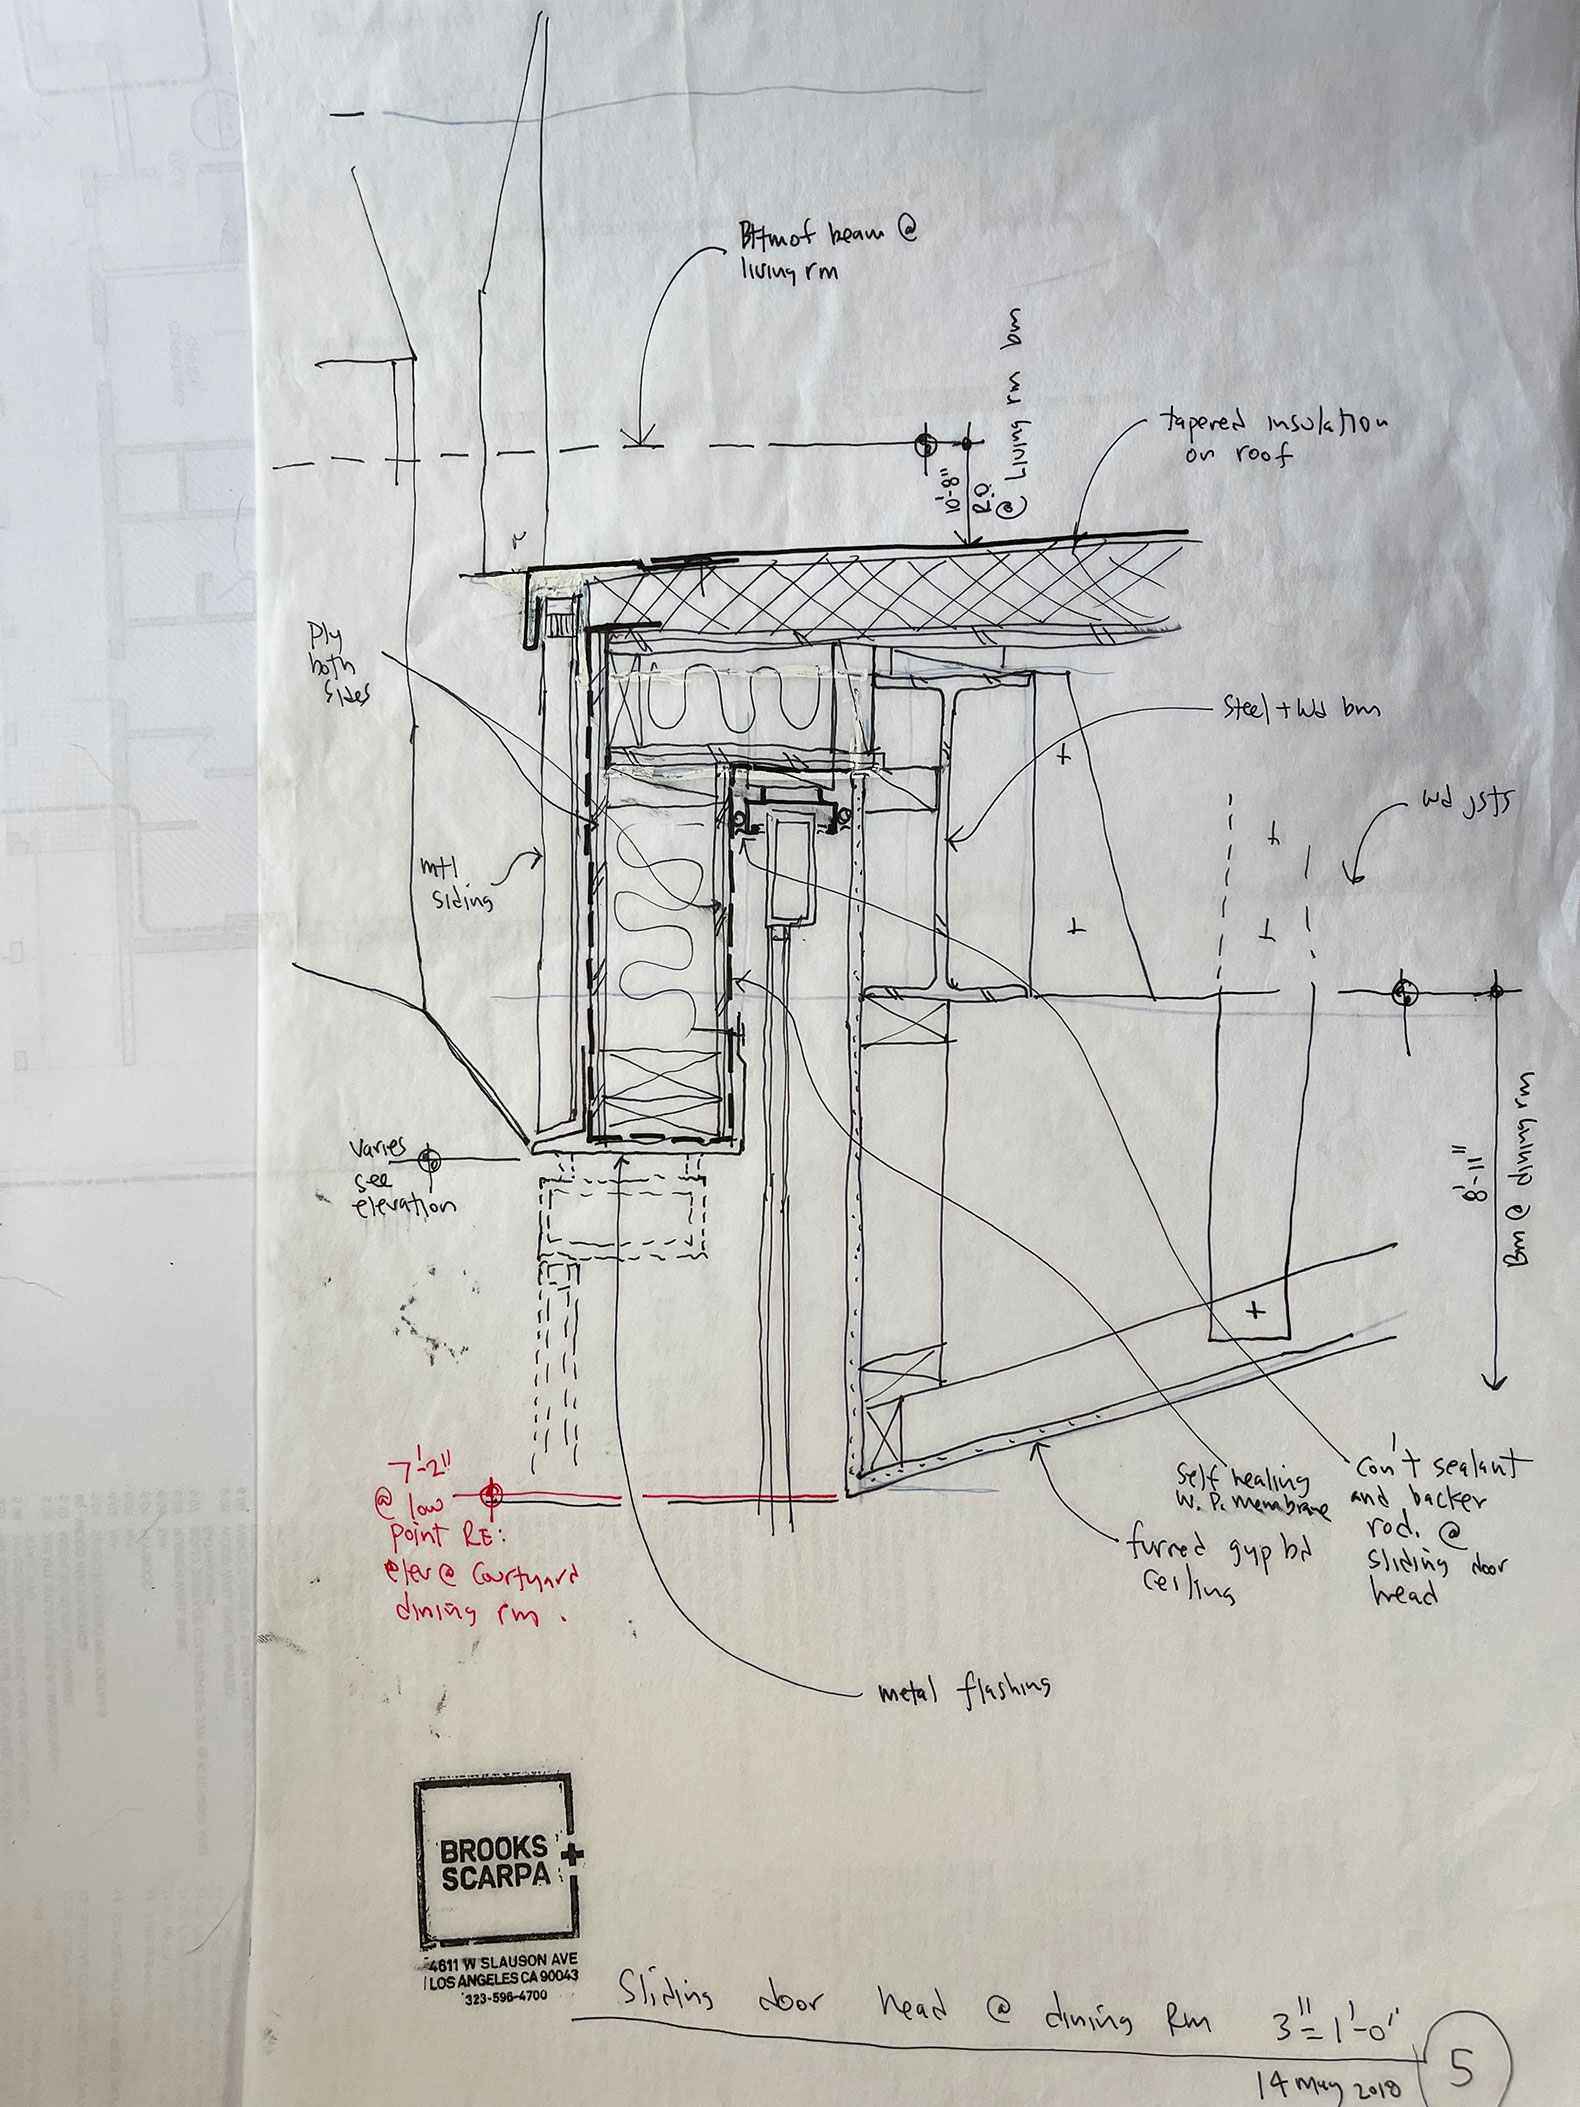 Bttm of beam @
living rm
10'-8"
R.O.
@ Living rm bm
tapered insulation
on roof
Ply
both
sides
Steel + Wd bm
Wd jsts
mtl
siding
Varies
see
elevation
8'-11"
Bm @ dining rm
7'-2"
@ low
point RE:
elev @ Courtyard
dining rm.
Self healing
W. P. membrane
con't sealant
and backer
rod. @
sliding door
head
furred gyp bd
ceiling
metal flashing
BROOKS +
SCARPA
4611 W SLAUSON AVE
LOS ANGELES CA 90043
323-596-4700
Sliding door head @ dining Rm 3"=1'-0"
14 May 2018
5